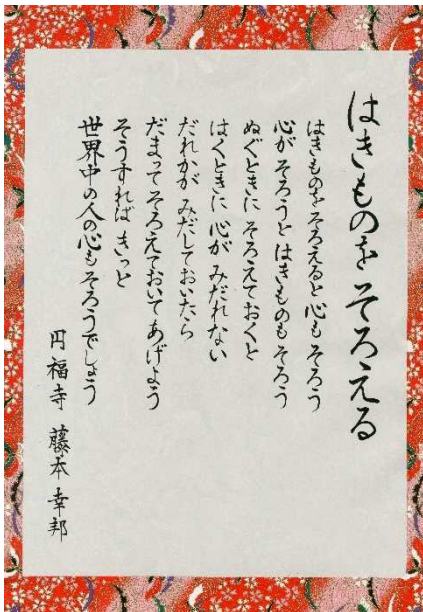 はきものを そろえる
はきものをそろえると心も そろう
心が そろうと はきものも そろう
ぬぐときに そろえておくと
はくときに 心が みだれない
だれかが みだしておいたら
だまって そろえておいてあげよう
そうすれば きっと
世界中の人の心も そろうでしょう
円福寺 藤本幸邦